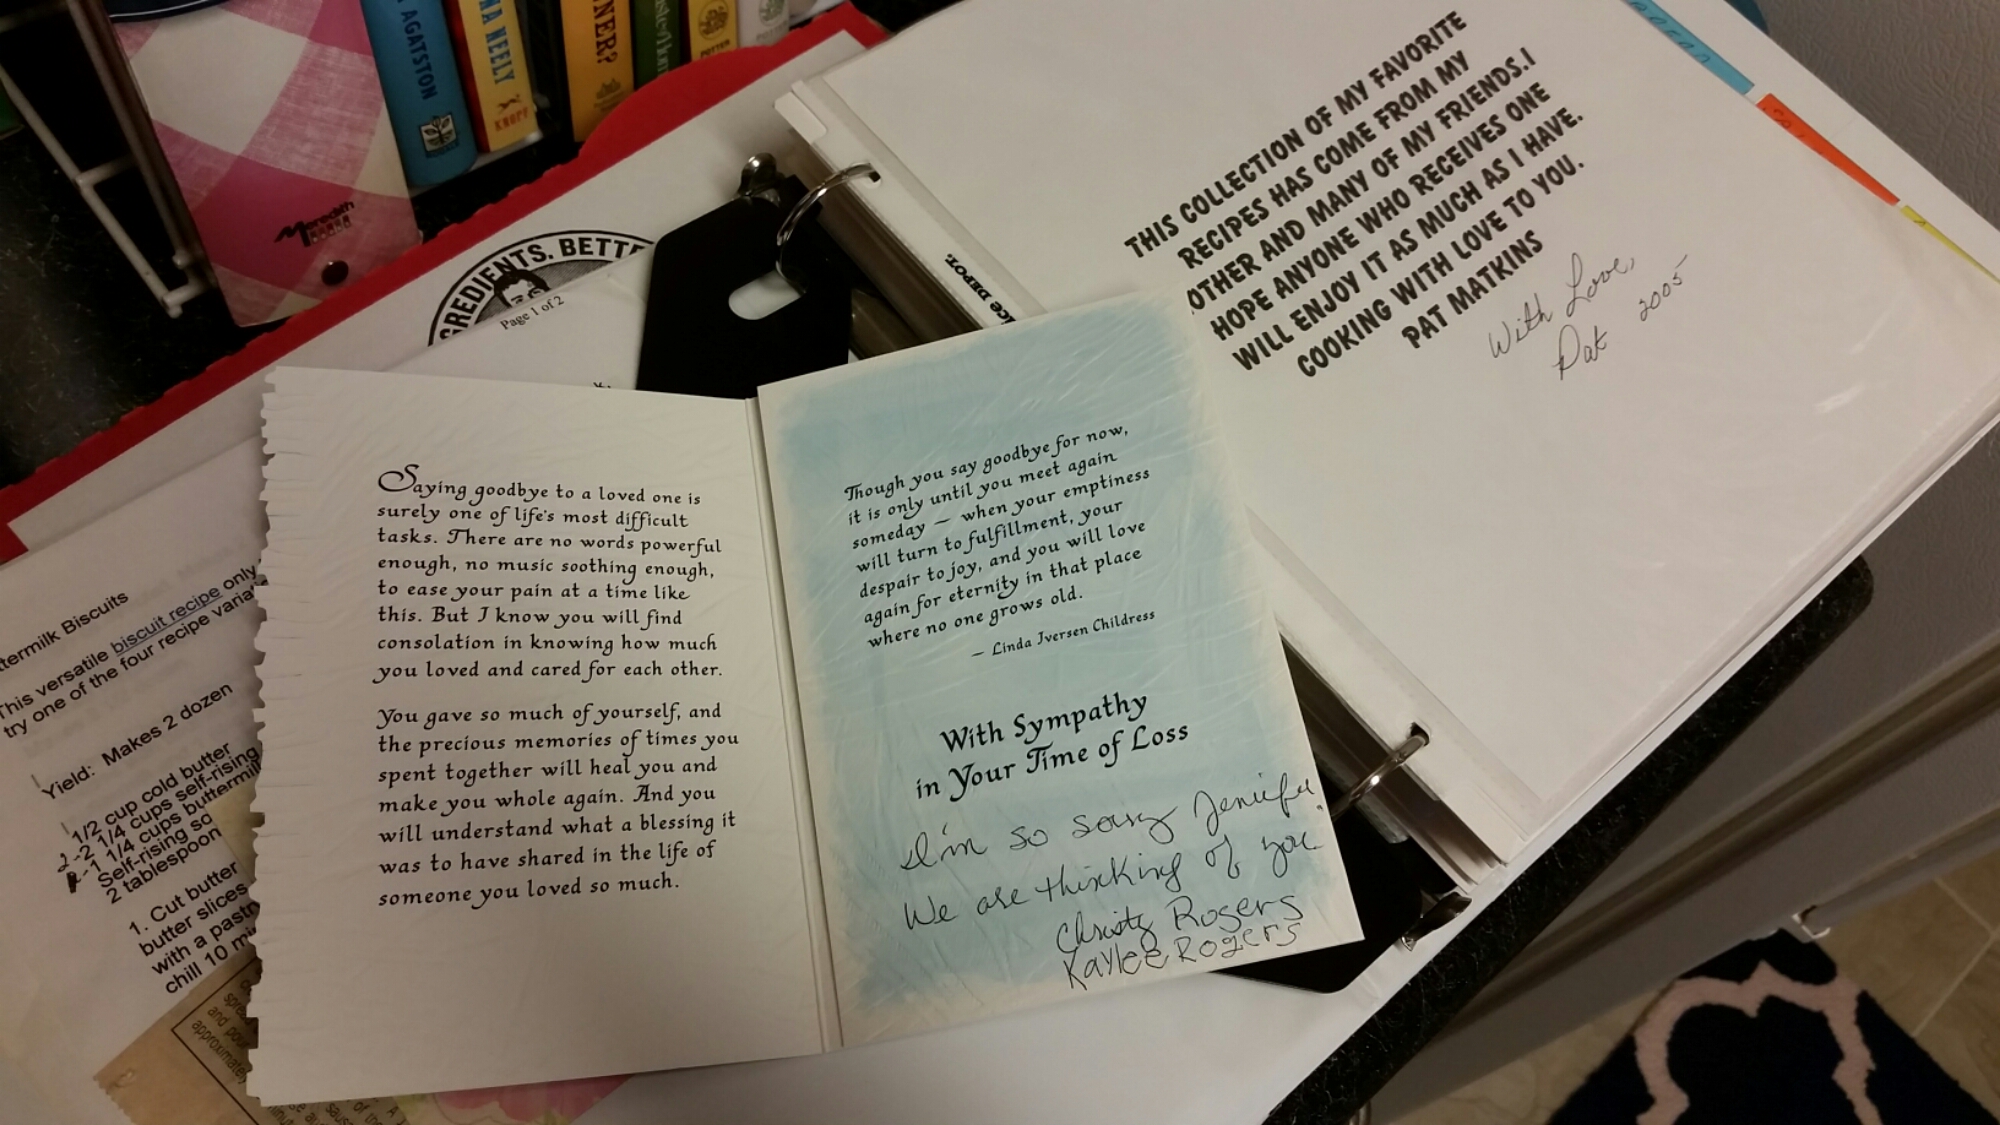 AGATSTON
NA NEELY
KNOPF
NNER?
POTTER
Meredith
GREDIENTS. BETTE
Page 1 of 2
ICE DEPOT.
THIS COLLECTION OF MY FAVORITE
RECIPES HAS COME FROM MY
OTHER AND MANY OF MY FRIENDS. I
HOPE ANYONE WHO RECEIVES ONE
WILL ENJOY IT AS MUCH AS I HAVE.
COOKING WITH LOVE TO YOU.
PAT MATKINS
With Love,
Pat 2005
Saying goodbye to a loved one is
surely one of life's most difficult
tasks. There are no words powerful
enough, no music soothing enough,
to ease your pain at a time like
this. But I know you will find
consolation in knowing how much
you loved and cared for each other.
You gave so much of yourself, and
the precious memories of times you
spent together will heal you and
make you whole again. And you
will understand what a blessing it
was to have shared in the life of
someone you loved so much.
Though you say goodbye for now,
it is only until you meet again
someday — when your emptiness
will turn to fulfillment, your
despair to joy, and you will love
again for eternity in that place
where no one grows old.
— Linda Iversen Childress
With Sympathy
in Your Time of Loss
I'm so sorry Jennifer.
We are thinking of you.
Christy Rogers
Kaylee Rogers
termilk Biscuits
This versatile biscuit recipe only
try one of the four recipe varia
Yield: Makes 2 dozen
1/2 cup cold butter
2-2 1/4 cups self-rising
1-1 1/4 cups buttermil
Self-rising so
2 tablespoon
1. Cut butter
butter slices
with a pastr
chill 10 mi
spre
and pou
approximately